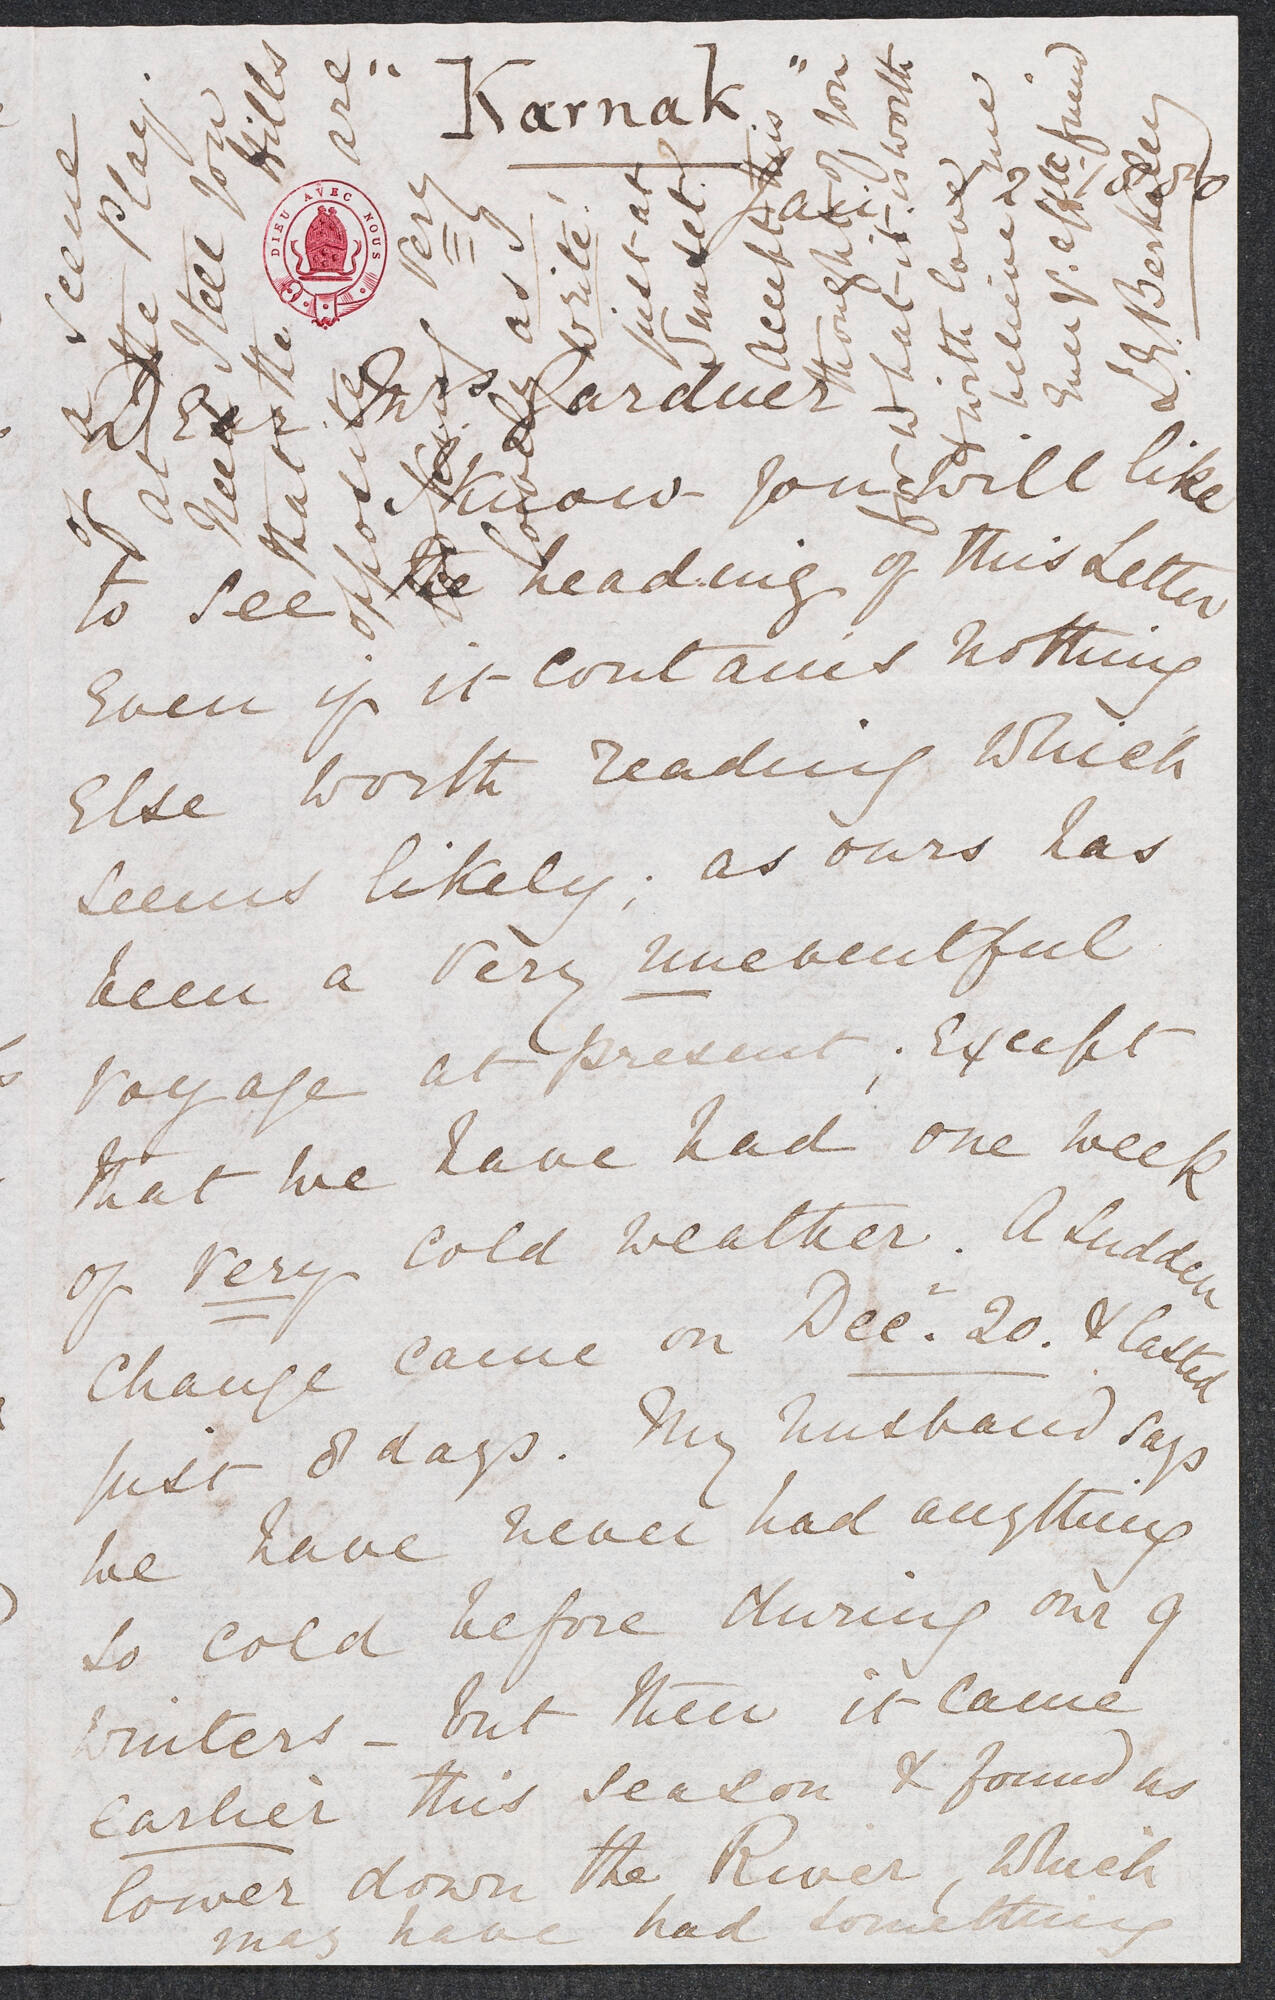 "Karnak"
Jan: 8 80
DIEU AVEC NOUS
Dear Mrs Gardner
I know you will like
to see the heading of this Letter
Even if it contains nothing
Else worth reading which
seems likely; as ours has
been a very uneventful
voyage at present; Except
that we have had one week
of very cold weather. A sudden
change came on Decr. 20. & lasted
just 8 days. My husband says
we have never had anything
so cold before during our 9
winters – but then it came
earlier this season & found us
lower down the River, which
may have had something
of a scene
at the play.
Need I tell you
that the Hills
opposite are
very
lovely as I
write!
just at
Sunset.
Accept this
thought of you
for what it is worth
& with love
believe me
Ever yr. affte friend
L. G. Berkeley